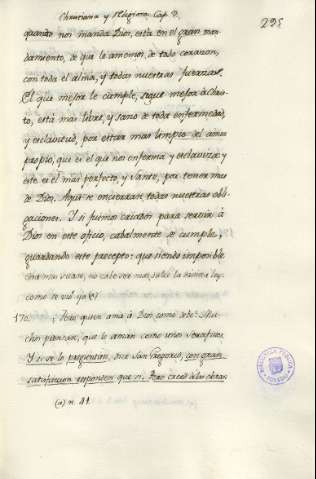 Christiana y Religiosa. Cap. 9.
295
quanto nos manda Dios, esta en el gran man-
damiento, de que le amemos, de todo corazon,
con toda el alma, y todas nuestras fuerzas.
El que mejor le cumple, sigue mejor à Chris-
to, està mas libre, y sano de toda enfermedad,
y esclavitud, por estar mas limpio del amor
propio, que es el que nos enferma, y esclaviza: y
este es el mas perfecto, y Santo, por tener mas
de Dios. Aqui se encierran todas nuestras obli-
gaciones. Y si fuimos criados para servir à
Dios en este oficio, cabalmente se cumple,
guardando este precepto: que siendo imposible
no cabe ver mas, sobre la misma ley,
como te
170. Pero quien ama à Dios como debe? Mu-
chos piensan, que le aman como unos Serafines.
Y si se lo preguntan, dice San Gregorio, con gran
satisfaccion responden que si. Pero creed à las obras
(a) n. 41.
BIBLIOTECA PUBLICA